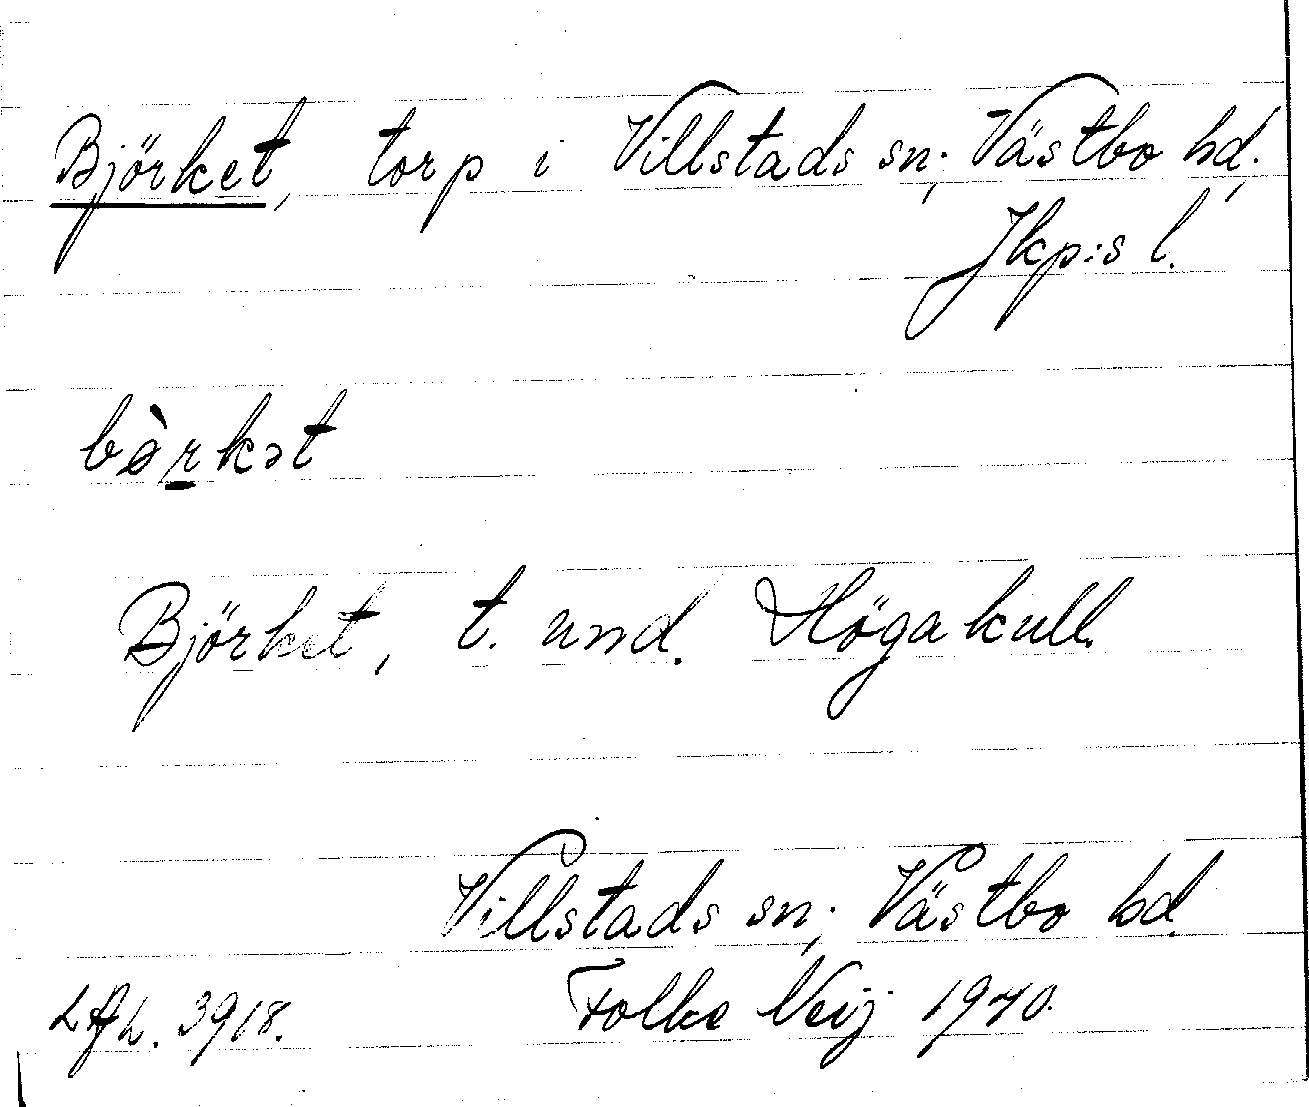 Björket, torp i Villstads sn; Västbo hd;
Jkp:s l.
bèrkət
Björket, t. und. Högakull.
Villstads sn; Västbo hd.
Folke Neij 1940.
3918.